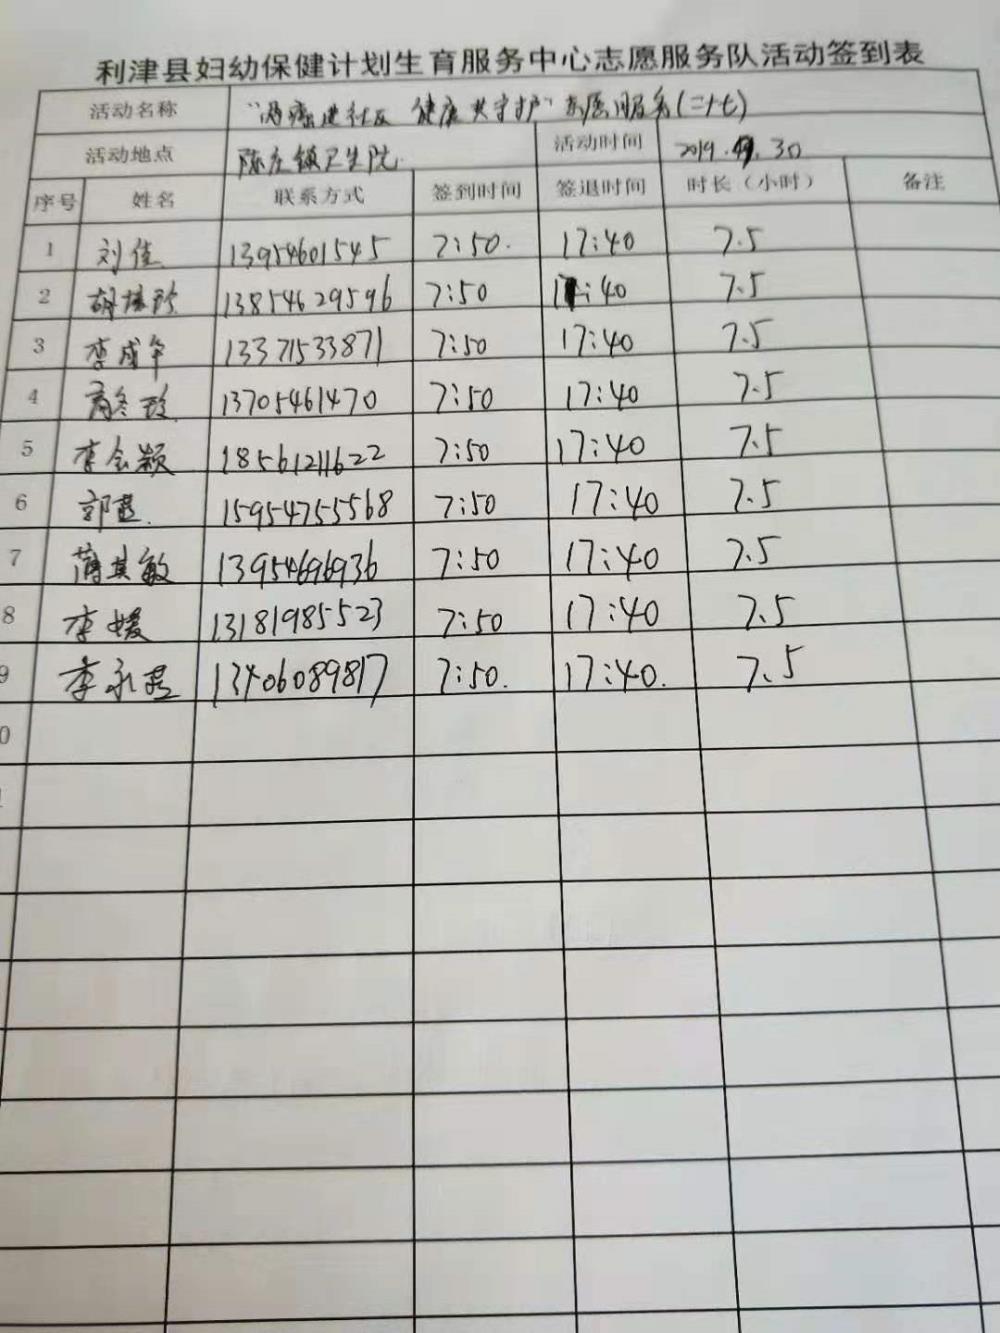 利津县妇幼保健计划生育服务中心志愿服务队活动签到表
活动名称 "两癌进社区 健康共守护"志愿服务(二十七)
活动地点 陈庄镇卫生院. 活动时间 2019. .30
序号 姓名 联系方式 签到时间 签退时间 时长(小时) 备注
1 刘佳 13954601545 7:50. 17:40 7.5
2 胡 13854629596 7:50 17:40 7.5
3 李成年 13371533871 7:50 17:40 7.5
4 商冬玲 13705461470 7:50 17:40 7.5
5 李会颖 18561211622 7:50 17:40 7.5
6 郭燕. 15954755568 7:50 17:40 7.5
7 薄其敏 13954696936 7:50 17:40 7.5
8 李媛 13181985523 7:50 17:40 7.5
9 李永 13406089817 7:50. 17:40. 7.5
0